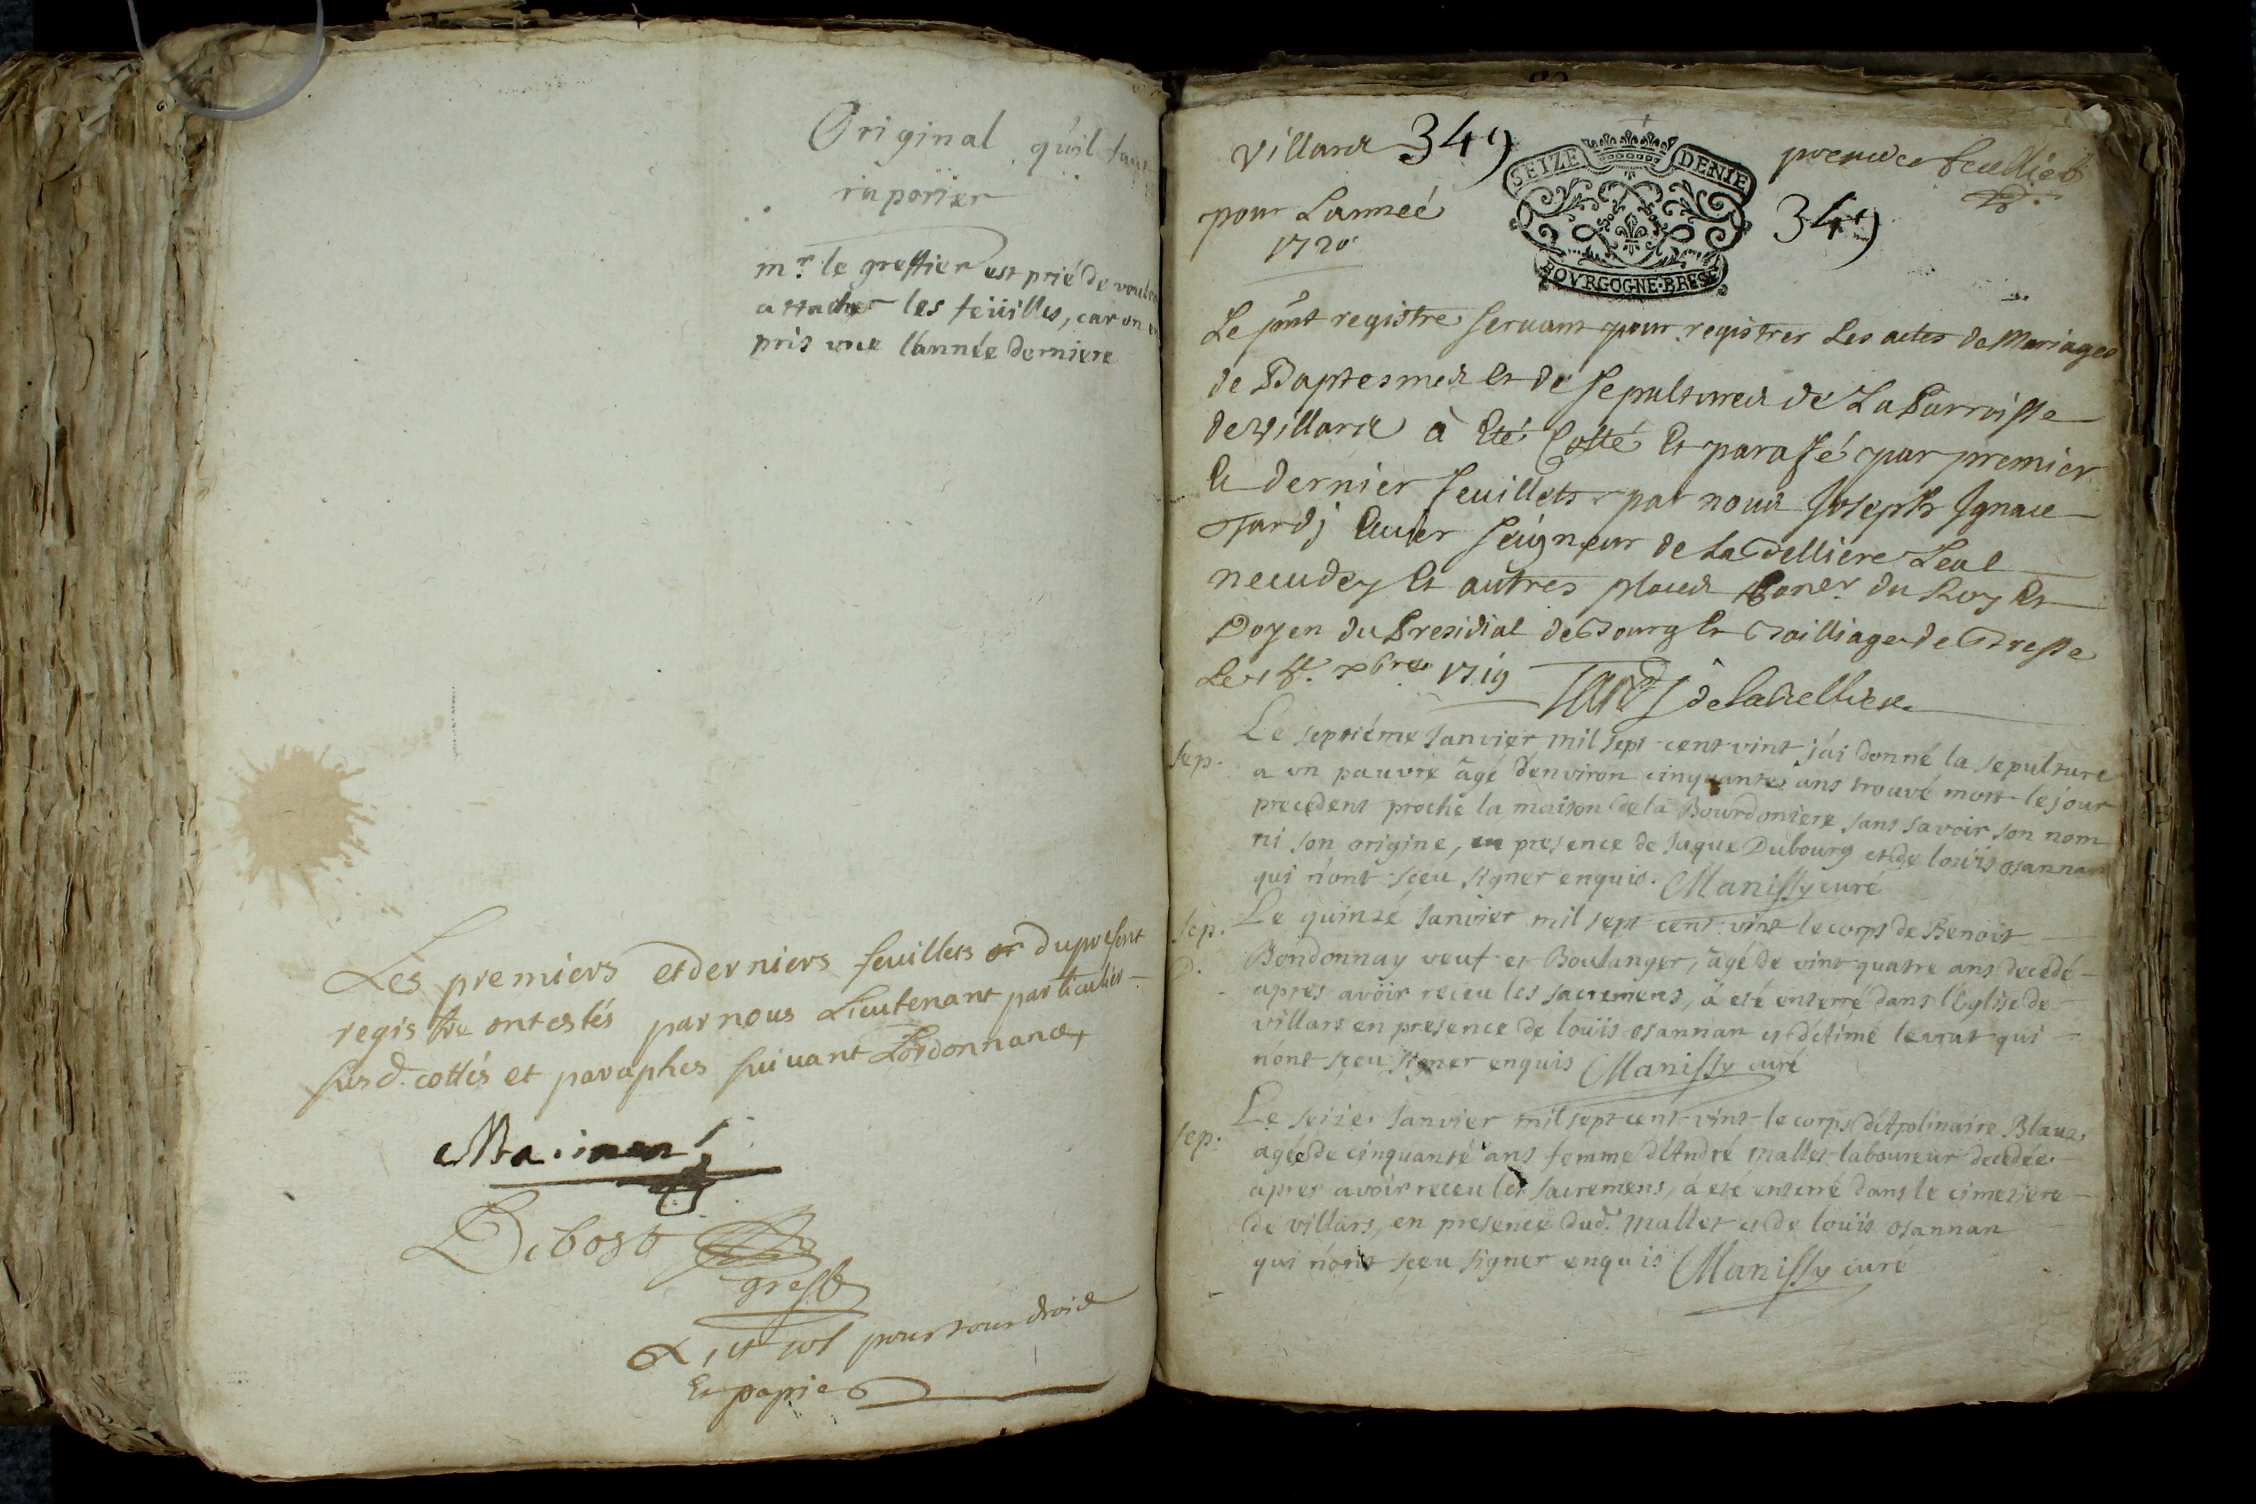 Original quil faut
raporter
mr. le greffier est prié de vouloir
attacher les feüilles, car on en
pris une l'année derniere
Les premiers et derniers feuillets du present
registre ont estés par nous Lieutenant particulier
susd. cottés et paraphes suivant Lordonnance
Debost
greff
sol pour tour droid
Et papier
Villard 349
premier feuillet
pour Lanneé
1720
349
SEIZE DENIE
BOVRGOGNE·BRESE
Le pnt registre servant pour registrer Les actes de Mariages
de Baptesmes Et de sepultures de La Parroisse
de Villard à Eté Cotté Et parafé par premier
Et dernier feuillets par nous Joseph Ignace
Tardj Ecuier Seigneur de la Belliere Leal
necudey Et autres places Coner du Roy Et
Doyen du Presidial de Bourg Et Bailliage de Bresse
Le xbre 1719 Tardy de la Belliere
Sep. Le septiéme Janvier mil sept cent vint j'ai donné la sepulture
a un pauvre âgé d'environ cinquante ans trouvé mort le jour
precedent proche la maison de la Bourdoniere sans savoir son nom
ni son origine, en presence de Jaque Dubourg et de loüis osannan
qui n'ont sçeu signer enquis. Manissy curé
Sep. Le quinzé Janvier mil sept cent vint le corps de Benoit
Bondonnay veuf et Boulanger, âgé de vint quatre ans decedé
apres avoir receu les sacremens, à eté enterré dans l'Eglise de
villars en presence de loüis osannan et d'etime levrat qui
n'ont sçeu signer enquis Manissy curé
Sep. Le seize Janvier mil sept cent vint le corps d'Apolinaire Blanc
agée de cinquante ans femme d'André mallet laboureur decedée
apres avoir receu les sacremens, à eté enterré dans le cimetiere
de villars, en presence dud. mallet et de loüis osannan
qui n'ont sçeu signer enquis Manissy curé